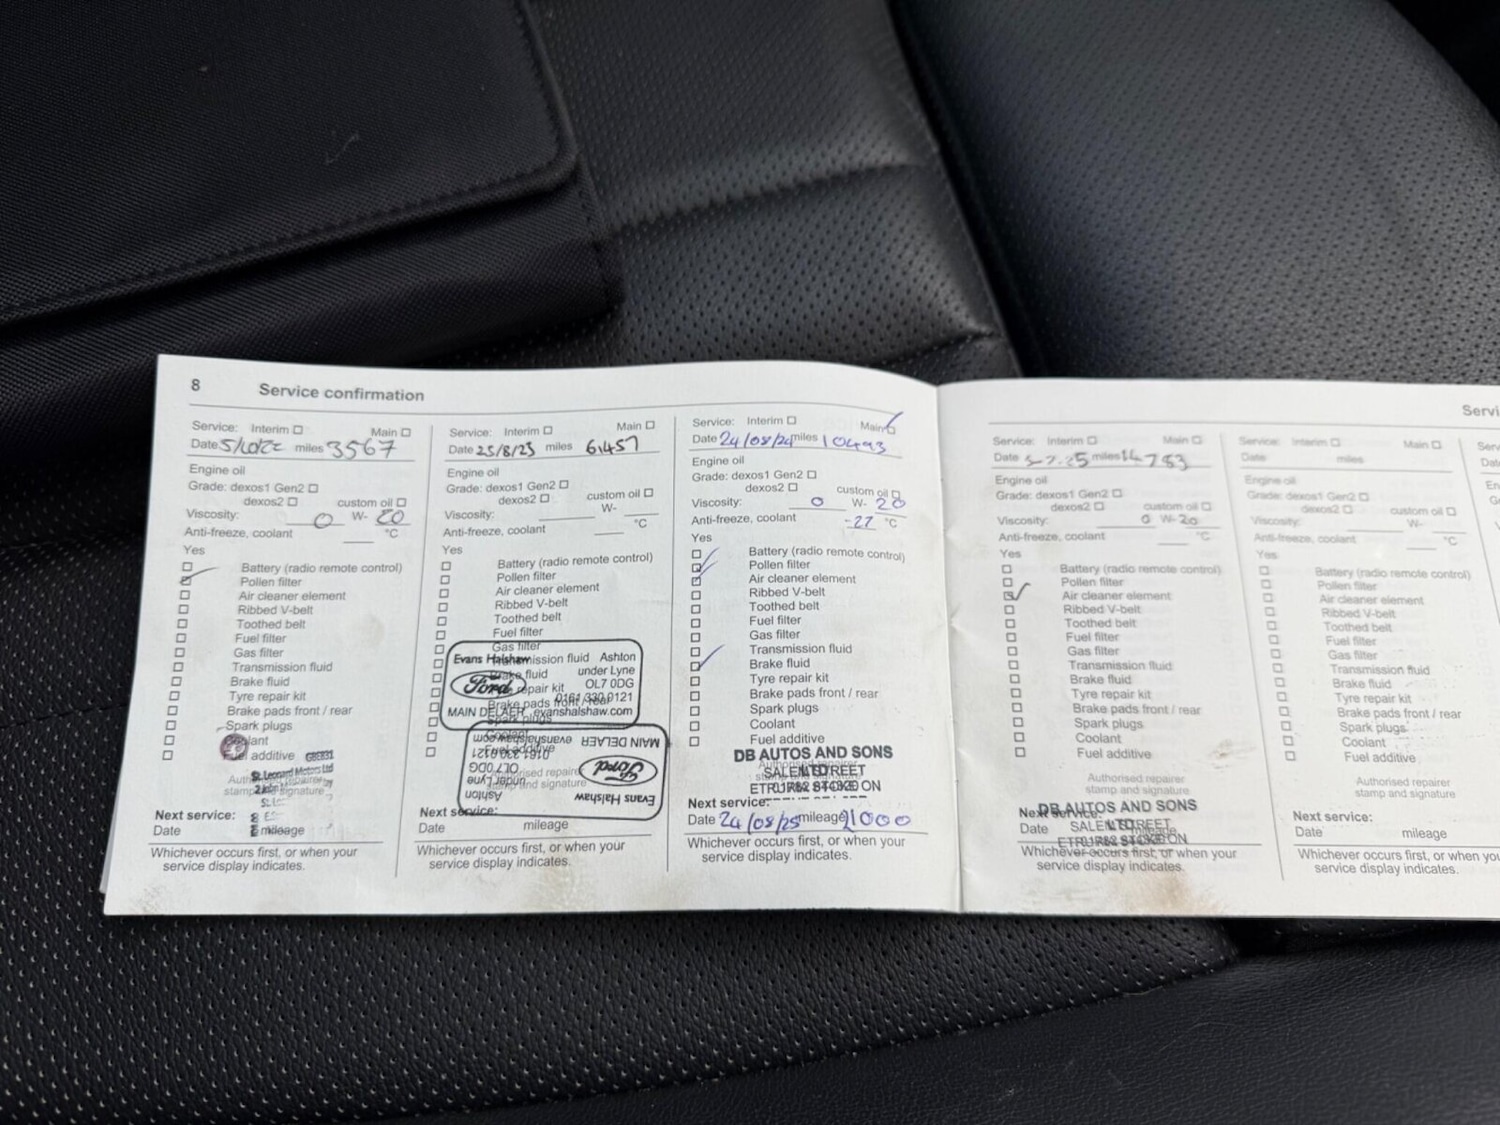 8 Service confirmation
Service: Interim Main
Date 5/10/22 miles 3567
Engine oil
Grade: dexos1 Gen2
dexos2 custom oil
Viscosity: 0 W- 20
Anti-freeze, coolant °C
Yes
Battery (radio remote control)
Pollen filter
Air cleaner element
Ribbed V-belt
Toothed belt
Fuel filter
Gas filter
Transmission fluid
Brake fluid
Tyre repair kit
Brake pads front / rear
Spark plugs
Coolant
Fuel additive
St. Leonard Motors Ltd
stamp and signature
Next service:
Date mileage
Whichever occurs first, or when your
service display indicates.
Service: Interim Main
Date 25/8/23 miles 6,457
Engine oil
Grade: dexos1 Gen2
dexos2 custom oil
Viscosity: W-
Anti-freeze, coolant °C
Yes
Battery (radio remote control)
Pollen filter
Air cleaner element
Ribbed V-belt
Toothed belt
Fuel filter
Gas filter
Evans Halshaw Ashton
under Lyne
Ford OL7 0DG
0161 330 0121
MAIN DELAER evanshalshaw.com
MAIN DELAER evanshalshaw.com
0161 330 0121
Ford OL7 0DG
under Lyne
Evans Halshaw Ashton
Next service:
Date mileage
Whichever occurs first, or when your
service display indicates.
Service: Interim Main
Date 24/08/24 miles 10493
Engine oil
Grade: dexos1 Gen2
dexos2 custom oil
Viscosity: 0 W- 20
Anti-freeze, coolant -27 °C
Yes
Battery (radio remote control)
Pollen filter
Air cleaner element
Ribbed V-belt
Toothed belt
Fuel filter
Gas filter
Transmission fluid
Brake fluid
Tyre repair kit
Brake pads front / rear
Spark plugs
Coolant
Fuel additive
DB AUTOS AND SONS
Next service:
Date 24/08/25 mileage 21000
Whichever occurs first, or when your
service display indicates.
Servi
Service: Interim Main
Date 5-7-25 miles 14783
Engine oil
Grade: dexos1 Gen2
dexos2 custom oil
Viscosity: 0 W-20
Anti-freeze, coolant °C
Yes
Battery (radio remote control)
Pollen filter
Air cleaner element
Ribbed V-belt
Toothed belt
Fuel filter
Gas filter
Transmission fluid
Brake fluid
Tyre repair kit
Brake pads front / rear
Spark plugs
Coolant
Fuel additive
Authorised repairer
stamp and signature
DB AUTOS AND SONS
Next service:
Date
Whichever occurs first, or when your
service display indicates.
Service: Interim Main
Date miles
Engine oil
Grade: dexos1 Gen2
dexos2 custom oil
Viscosity: W-
Anti-freeze, coolant °C
Yes
Battery (radio remote control)
Pollen filter
Air cleaner element
Ribbed V-belt
Toothed belt
Fuel filter
Gas filter
Transmission fluid
Brake fluid
Tyre repair kit
Brake pads front / rear
Spark plugs
Coolant
Fuel additive
Authorised repairer
stamp and signature
Next service:
Date mileage
Whichever occurs first, or when you
service display indicates.